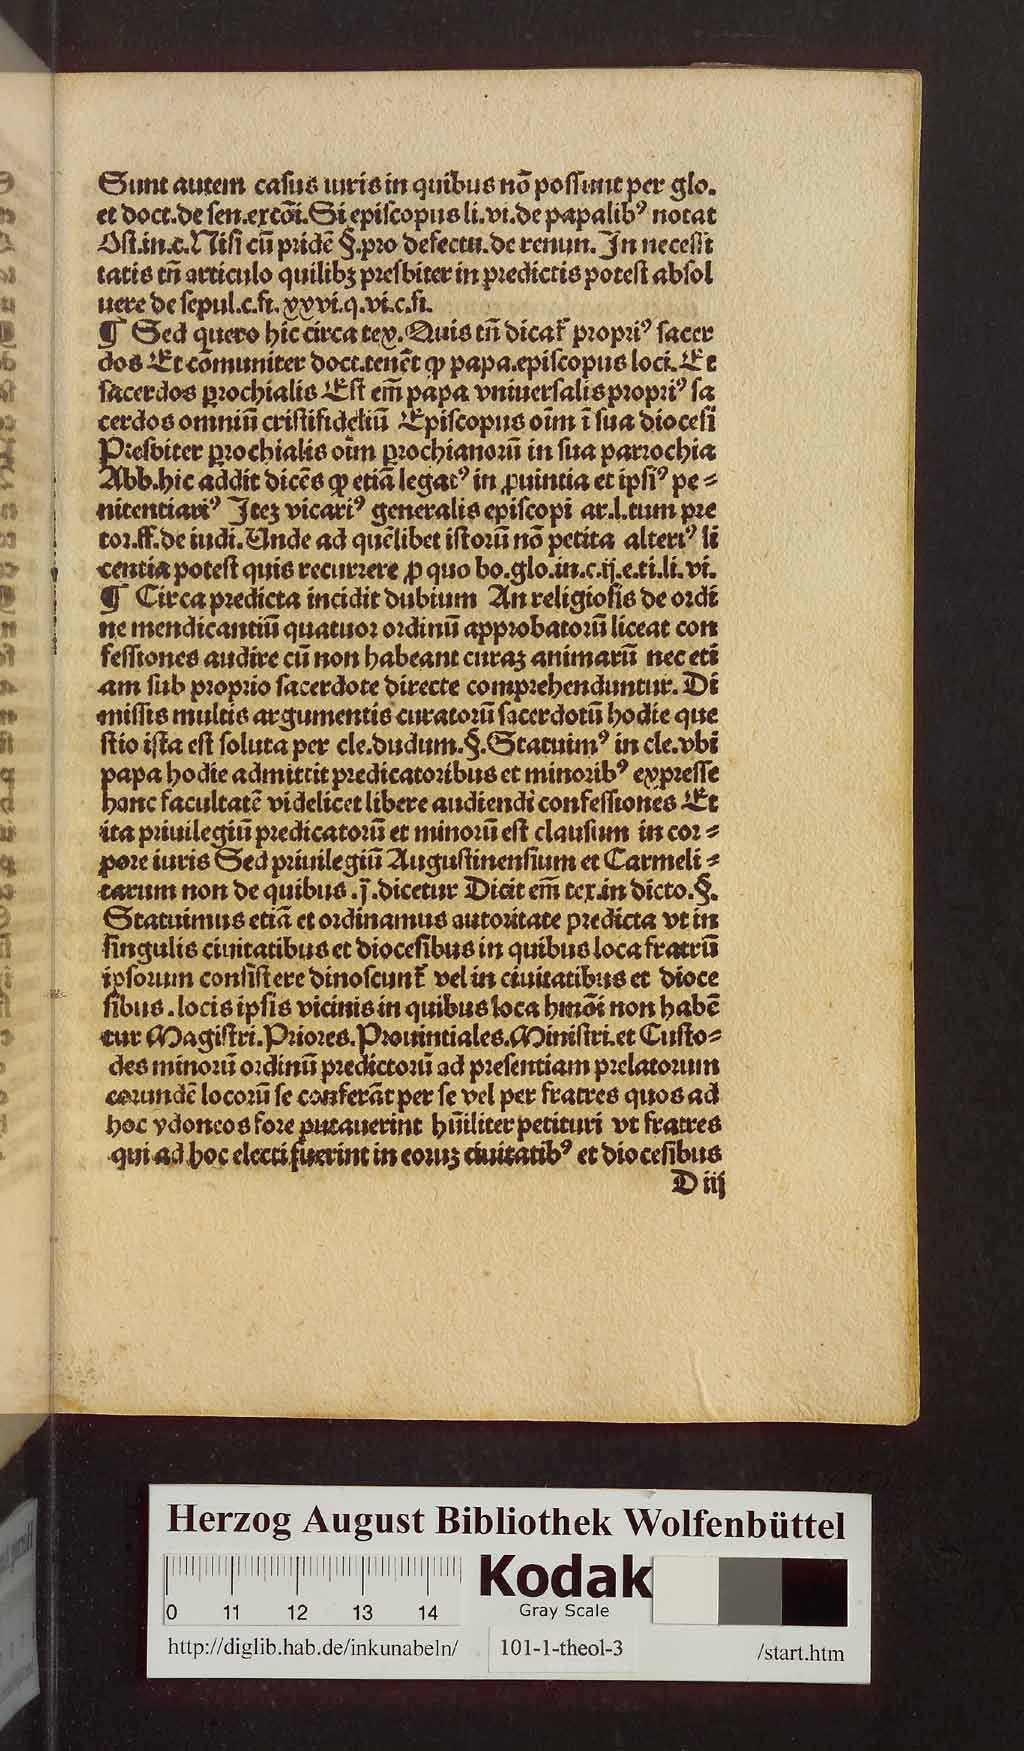 Sunt autem casus iuris in quibus nō possunt per glo.
et doct. de sen. excōi. Si episcopus li. vi. de papalibꝰ notat
Ost. in. c. Nisi cū pridē §. pro defectu. de renun. In necessi
tatis tn̄ articulo quilibꝫ presbiter in predictis potest absol
uere de sepul. c. fi. xxvi. q. vi. c. fi.
¶ Sed quero hic circa tex. Quis tn̄ dicat᷑ propriꝰ sacer
dos Et cōmuniter doct. tenēt ꝙ papa. episcopus loci. Et
sacerdos ꝑrochialis Est em̄ papa vniuersalis propriꝰ sa
cerdos omniū cristifideliū Episcopus oīm ī sua diocesi
Presbiter ꝑrochialis oīm ꝑrochianorū in sua parrochia
Abb. hic addit dicēs ꝙ etiā legatꝰ in ꝓuintia et ipsiꝰ pe⸗
nitentiariꝰ Iteꝫ vicariꝰ generalis episcopi ar. l. tum pre
tor. ff. de iudi. Unde ad quēlibet istorū nō petita alteriꝰ li
centia potest quis recurrere ꝓ quo bo. glo. in. c. ij. e. ti. li. vi.
¶ Circa predicta incidit dubium An religiosis de ordi
ne mendicantiū quatuor ordinū approbatorū liceat con
fessiones audire cū non habeant curaꝫ animarū nec eti
am sub proprio sacerdote directe comprehenduntur. Di
missis multis argumentis curatorū sacerdotū hodie que
stio ista est soluta per cle. dudum. §. Statuimꝰ in cle. vbi
papa hodie admittit predicatoribus et minoribꝰ expresse
hanc facultatē videlicet libere audiendi confessiones Et
ita priuilegiū predicatorū et minorū est clausum in cor⸗
pore iuris Sed priuilegiū Augustinensium et Carmeli⸗
tarum non de quibus .j̄. dicetur Dicit em̄ tex. in dicto. §.
Statuimus etiā et ordinamus autoritate predicta vt in
singulis ciuitatibus et diocesibus in quibus loca fratrū
ipsorum consistere dinoscunt᷑ vel in ciuitatibus et dioce
sibus. locis ipsis vicinis in quibus loca hmōi non habē
tur Magistri. Priores. Prouintiales. Ministri. et Custo⸗
des minorū ordinū predictorū ad presentiam prelatorum
eorundē locorū se conferāt per se vel per fratres quos ad
hoc ydoneos fore putauerint hūiliter petituri vt fratres
qui ad hoc electi fuerint in eoruꝫ ciuitatibꝰ et diocesibus
D iij
Herzog August Bibliothek Wolfenbüttel
Kodak
Gray Scale
0 11 12 13 14
http://diglib.hab.de/inkunabeln/ 101-1-theol-3 /start.htm